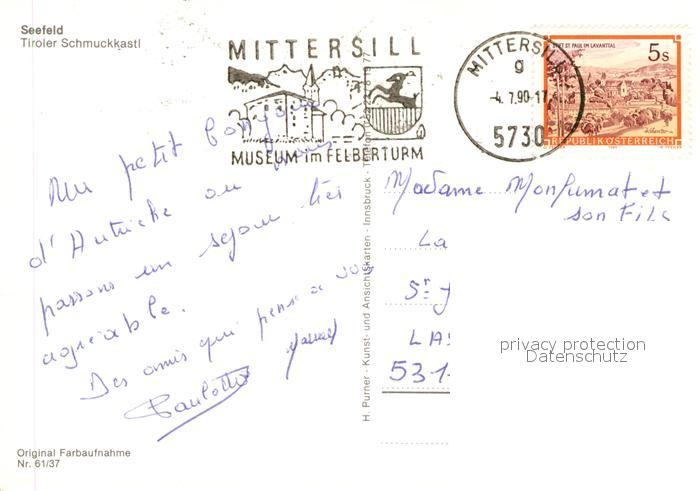 Seefeld
Tiroler Schmuckkastl
MITTERSILL
MUSEUM im FELBERTURM
MITTERSILL
g
-4.7.90-17
5730
STIFT ST. PAUL IM LAVANTTAL
5 S
REPUBLIK ÖSTERREICH
Un petit bonjour
d'Autriche ou nous
passons un sejour très
agréable.
Des amis qui pense a vous
Paulette
H. Purner · Kunst- und Ansichtskarten · Innsbruck · Telefon
Madame Monfumat et
son Fils
La
St J
LAS
531
privacy protection
Datenschutz
Original Farbaufnahme
Nr. 61/37